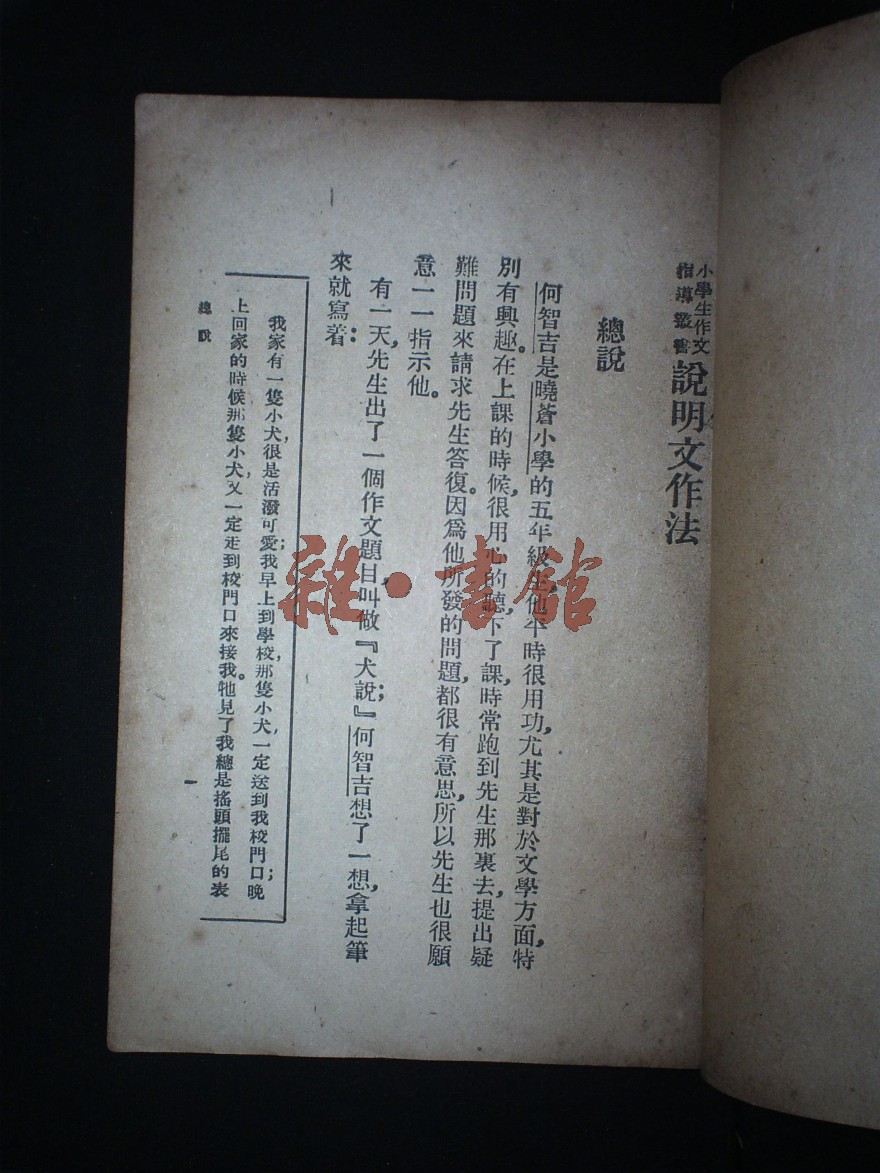 小學生作文
指導叢書
說明文作法
總說
何智吉是曉蒼小學的五年級生,他平時很用功,尤其是對於文學方面,特
別有興趣。在上課的時候,很用心的聽,下了課,時常跑到先生那裏去,提出疑
難問題來請求先生答復。因爲他所發的問題,都很有意思,所以先生也很願
意一一指示他。
有一天,先生出了一個作文題目,叫做『犬說;』何智吉想了一想,拿起筆
來就寫着:
我家有一隻小犬,很是活潑可愛;我早上到學校,那隻小犬,一定送到我校門口;晚
上回家的時候,那隻小犬,又一定走到校門口來接我。牠見了我,總是搖頭擺尾的表
總說
一
雜·書館